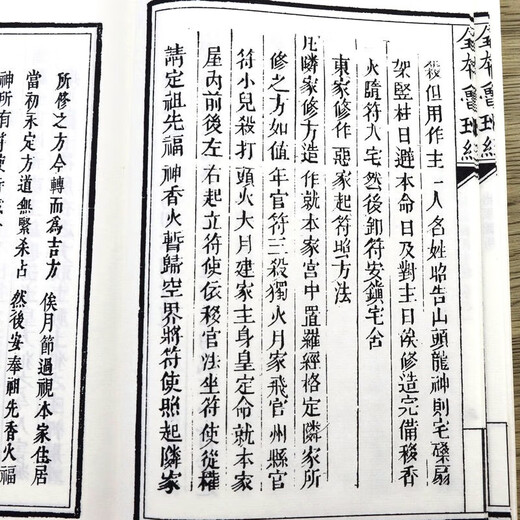 全本魯班經
全本魯班經
殺但用作主一人名姓昭告山頭龍神則宅磉扇
架竪柱日避本命日及對主日俟修造完備移香
火隨符入宅然後卸符安鎮宅舍
東家修作惡家起符照方法
凡隣家修方造作就本家宫中置羅經格定隣家所
修之方如值年官符三殺獨火月家飛官州縣官
符小兒殺打頭火大月建家主身皇定命就本家
屋内前後左右起立符使依移官法坐符使從權
請定祖先福神香火暫歸空界將符使照起隣家
所修之方今轉而爲吉方俟月節過視本家住居
當初永定方道無緊杀占然後安奉祖先香火福
神所有符使